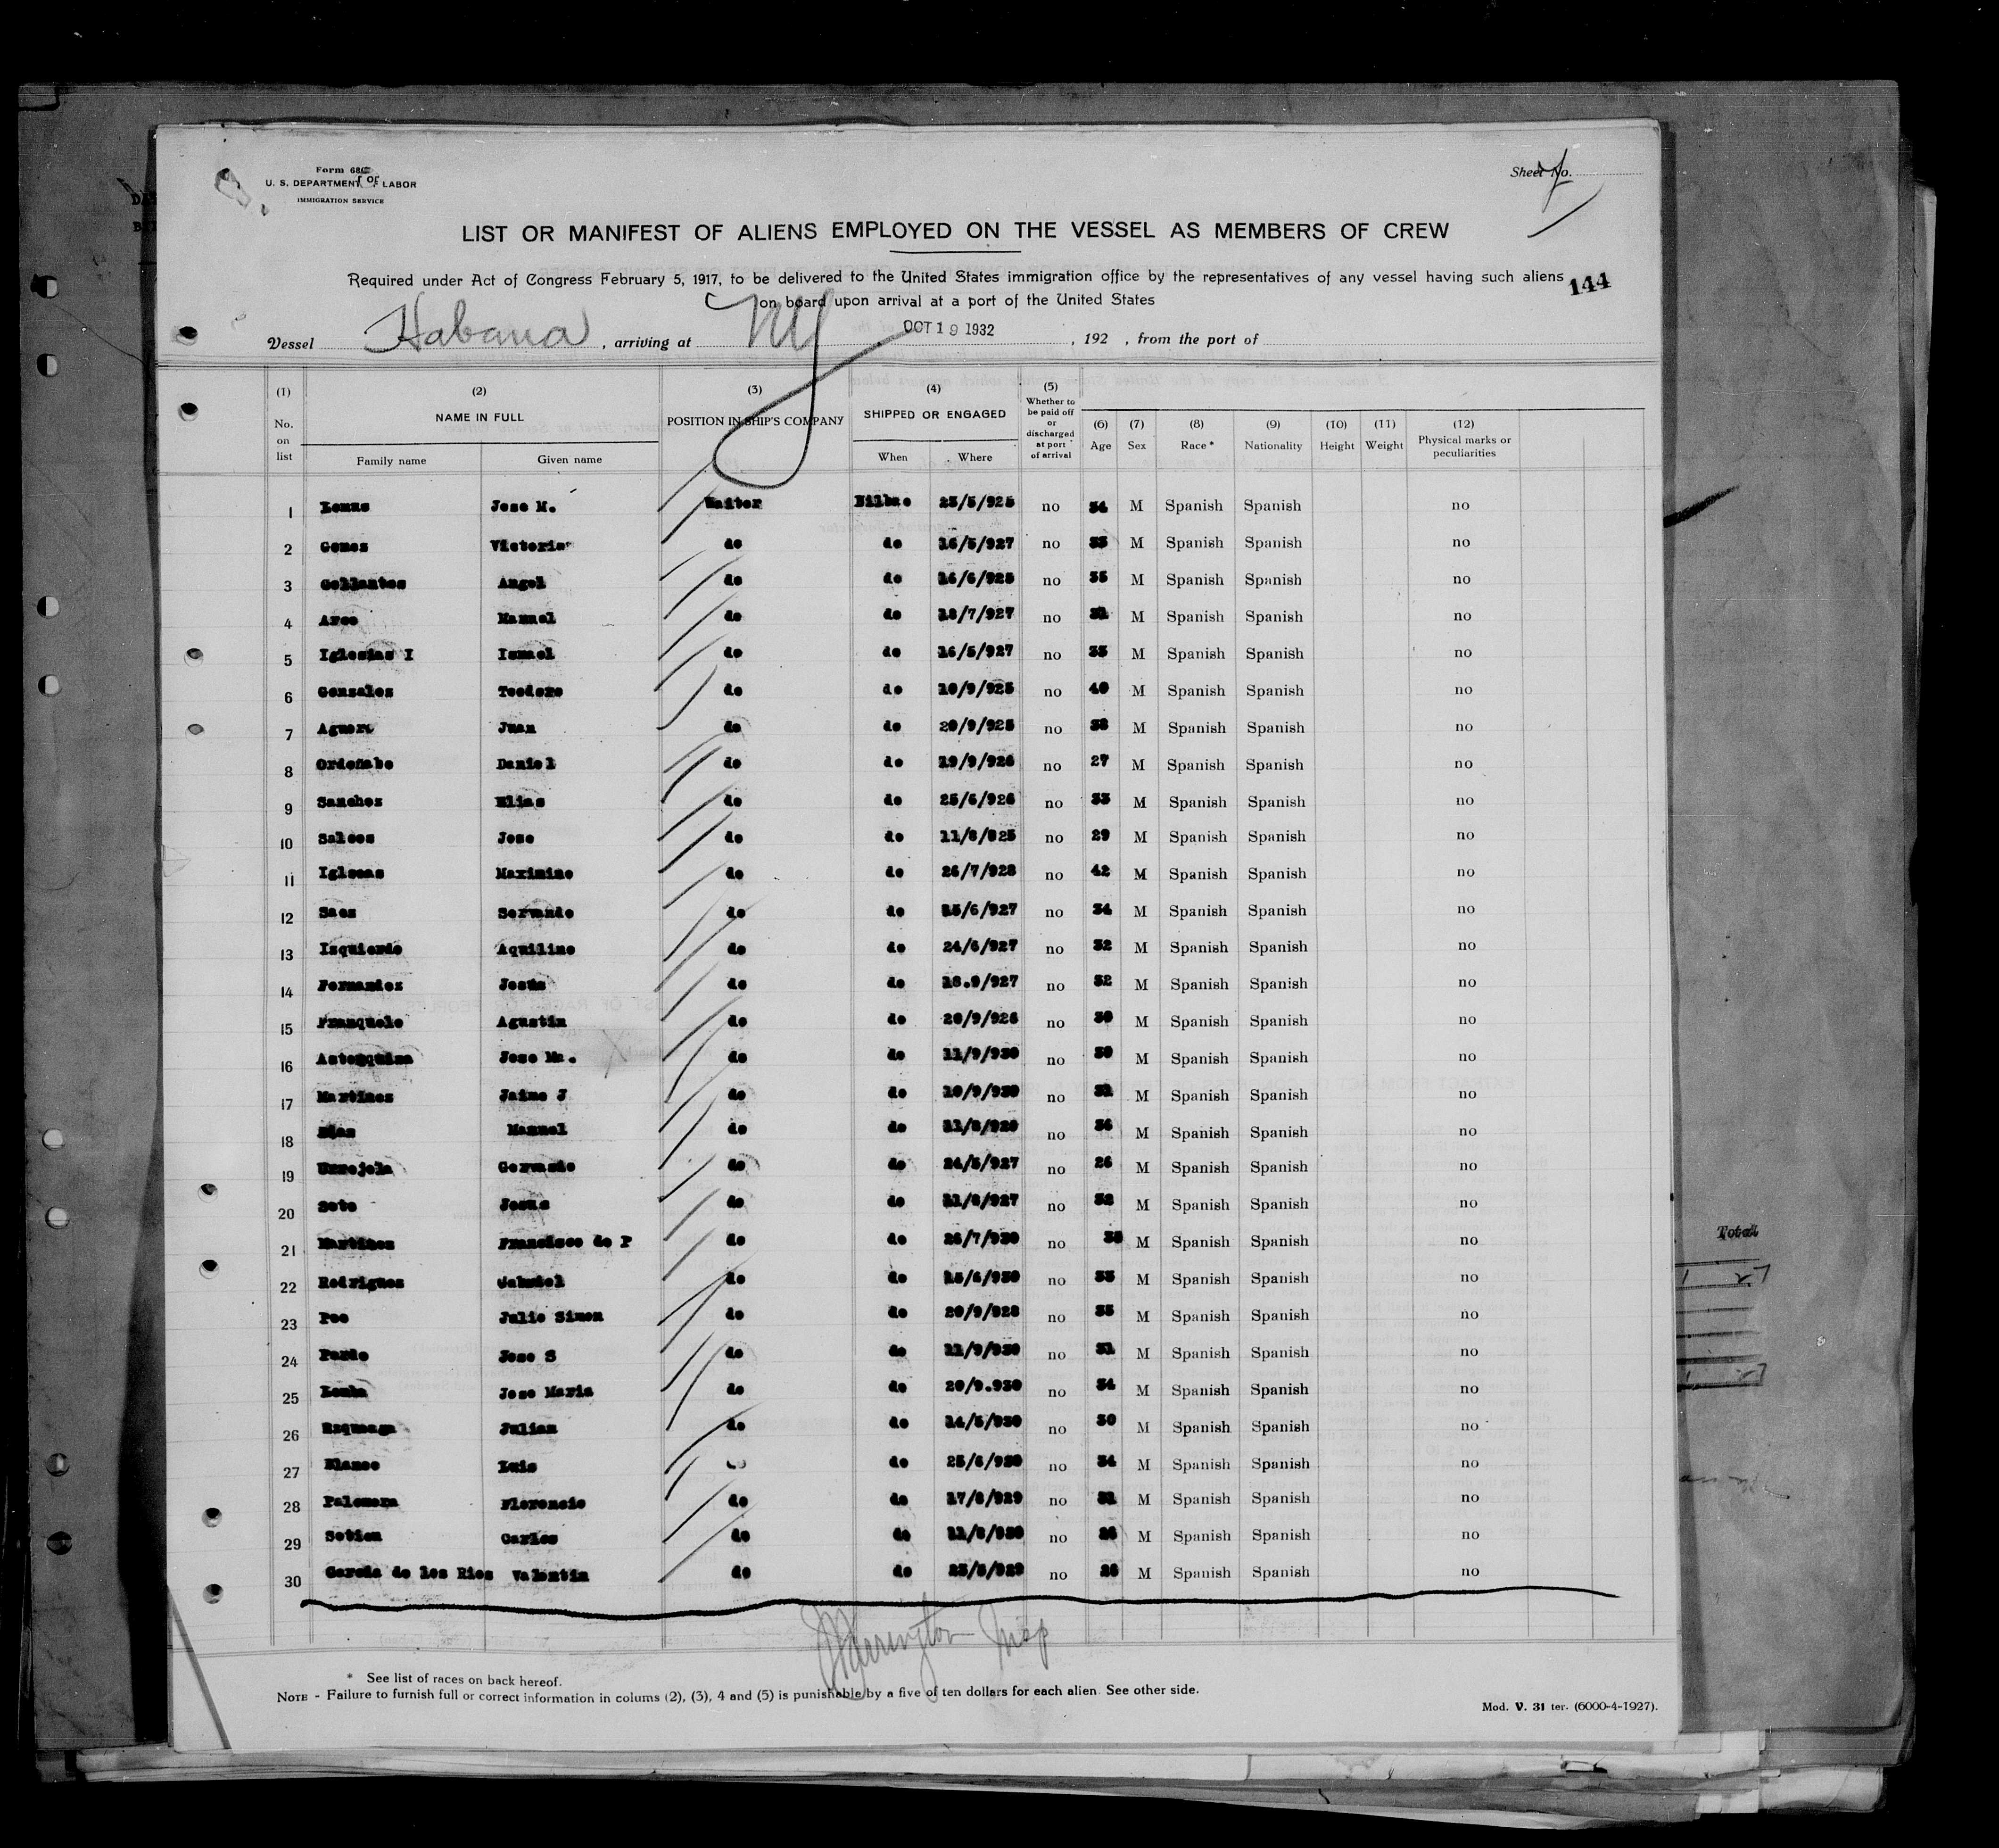 Form 680
U. S. DEPARTMENT OF LABOR
IMMIGRATION SERVICE
Sheet No.
LIST OR MANIFEST OF ALIENS EMPLOYED ON THE VESSEL AS MEMBERS OF CREW
Required under Act of Congress February 5, 1917, to be delivered to the United States immigration office by the representatives of any vessel having such aliens
on board upon arrival at a port of the United States
144
Vessel Habana, arriving at NY OCT 19 1932, 192 , from the port of
(1) (2) (3) (4) (5)
No. on list NAME IN FULL POSITION IN SHIP'S COMPANY SHIPPED OR ENGAGED Whether to be paid off or discharged at port of arrival (6) Age (7) Sex (8) Race * (9) Nationality (10) Height (11) Weight (12) Physical marks or peculiarities
Family name Given name When Where
1 Jose M. Waiter Bilbao 25/5/925 no 34 M Spanish Spanish no
2 Gomez do do 16/5/927 no 33 M Spanish Spanish no
3 Angel do do 16/6/925 no 35 M Spanish Spanish no
4 Arce Manuel do do 18/7/927 no M Spanish Spanish no
5 Iglesias I Ismael do do 16/5/927 no 33 M Spanish Spanish no
6 Gonzalez Teodoro do do 10/9/925 no 40 M Spanish Spanish no
7 Juan do do 20/9/925 no 38 M Spanish Spanish no
8 Ordeñabe Daniel do do 19/9/926 no 27 M Spanish Spanish no
9 Sanchez Elias do do 25/6/926 no 33 M Spanish Spanish no
10 Salces Jose do do 11/8/925 no 29 M Spanish Spanish no
11 Maximino do do 26/7/928 no 42 M Spanish Spanish no
12 Saez Servando do do 15/6/927 no 34 M Spanish Spanish no
13 Izquierdo Aquilino do do 24/6/927 no 32 M Spanish Spanish no
14 Fernandez Jesus do do 18.9/927 no 32 M Spanish Spanish no
15 Franquelo Agustin do do 20/9/926 no 30 M Spanish Spanish no
16 Jose Ma. do do 11/9/930 no 30 M Spanish Spanish no
17 Martinez Jaime J do do 10/9/930 no M Spanish Spanish no
18 Manuel do do no 36 M Spanish Spanish no
19 Gervasio do do 24/5/927 no 26 M Spanish Spanish no
20 Soto Jesus do do 11/8/927 no M Spanish Spanish no
21 Martinez Francisco de P do do 26/7/930 no M Spanish Spanish no
22 Rodriguez Gabriel do do 15/6/930 no 33 M Spanish Spanish no
23 Poo Julio Simon do do 20/9/928 no 35 M Spanish Spanish no
24 Pardo Jose S do do 11/9/930 no 31 M Spanish Spanish no
25 Jose Maria do do 20/9.930 no 34 M Spanish Spanish no
26 Julian do do 14/5/930 no 30 M Spanish Spanish no
27 Blanco Luis do do 25/6/930 no 34 M Spanish Spanish no
28 Palomera Florencio do do 17/8/929 no M Spanish Spanish no
29 Setien Carlos do do 11/8/930 no 26 M Spanish Spanish no
30 Garcia de los Rios Valentin do do no M Spanish Spanish no
* See list of races on back hereof.
NOTE - Failure to furnish full or correct information in colums (2), (3), 4 and (5) is punishable by a five of ten dollars for each alien. See other side.
Mod. V. 31 ter. (6000-4-1927).
Total